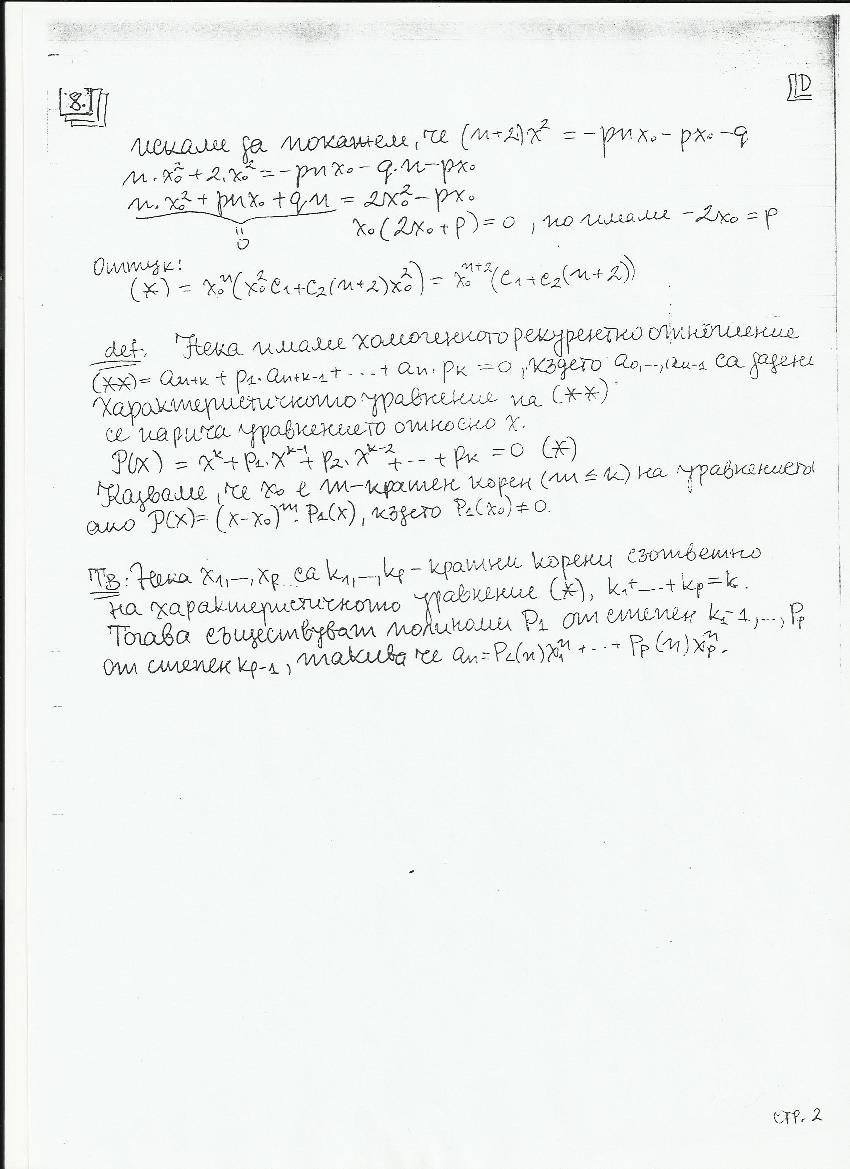 8.
D
искаме да покажем, че (n+2)x² = -pnx₀ - px₀ - q
n.x₀² + 2.x₀² = -pnx₀ - q.n - px₀
n.x₀² + pnx₀ + q.n = 2x₀² - px₀
0
x₀(2x₀ + p) = 0, но имаме -2x₀ = p
Оттук:
(*) = x₀ⁿ(x₀²c₁ + c₂(n+2)x₀²) = x₀ⁿ⁺²(c₁ + c₂(n+2))
def. Нека имаме хомогенното рекурентно отношение
(**) = aₙ₊ₖ + p₁.aₙ₊ₖ₋₁ + ... + aₙ.pₖ = 0, където a₀,...,aₖ₋₁ са дадени
Характеристичното уравнение на (**)
се нарича уравнението относно x.
P(x) = xᵏ + p₁.xᵏ⁻¹ + p₂.xᵏ⁻² + ... + pₖ = 0 (*)
Казваме, че x₀ е m-кратен корен (m ≤ k) на уравнението
ако P(x) = (x-x₀)ᵐ.P₁(x), където P₁(x₀) ≠ 0.
Тв: Нека x₁,...,xₚ са k₁,...,kₚ - кратни корени съответно
на характеристичното уравнение (*), k₁+...+kₚ = k.
Тогава съществуват полиноми P₁ от степен k₁-1,..., Pₚ
от степен kₚ-1, такива че aₙ = P₁(n)x₁ⁿ + ... + Pₚ(n)xₚⁿ.
стр. 2